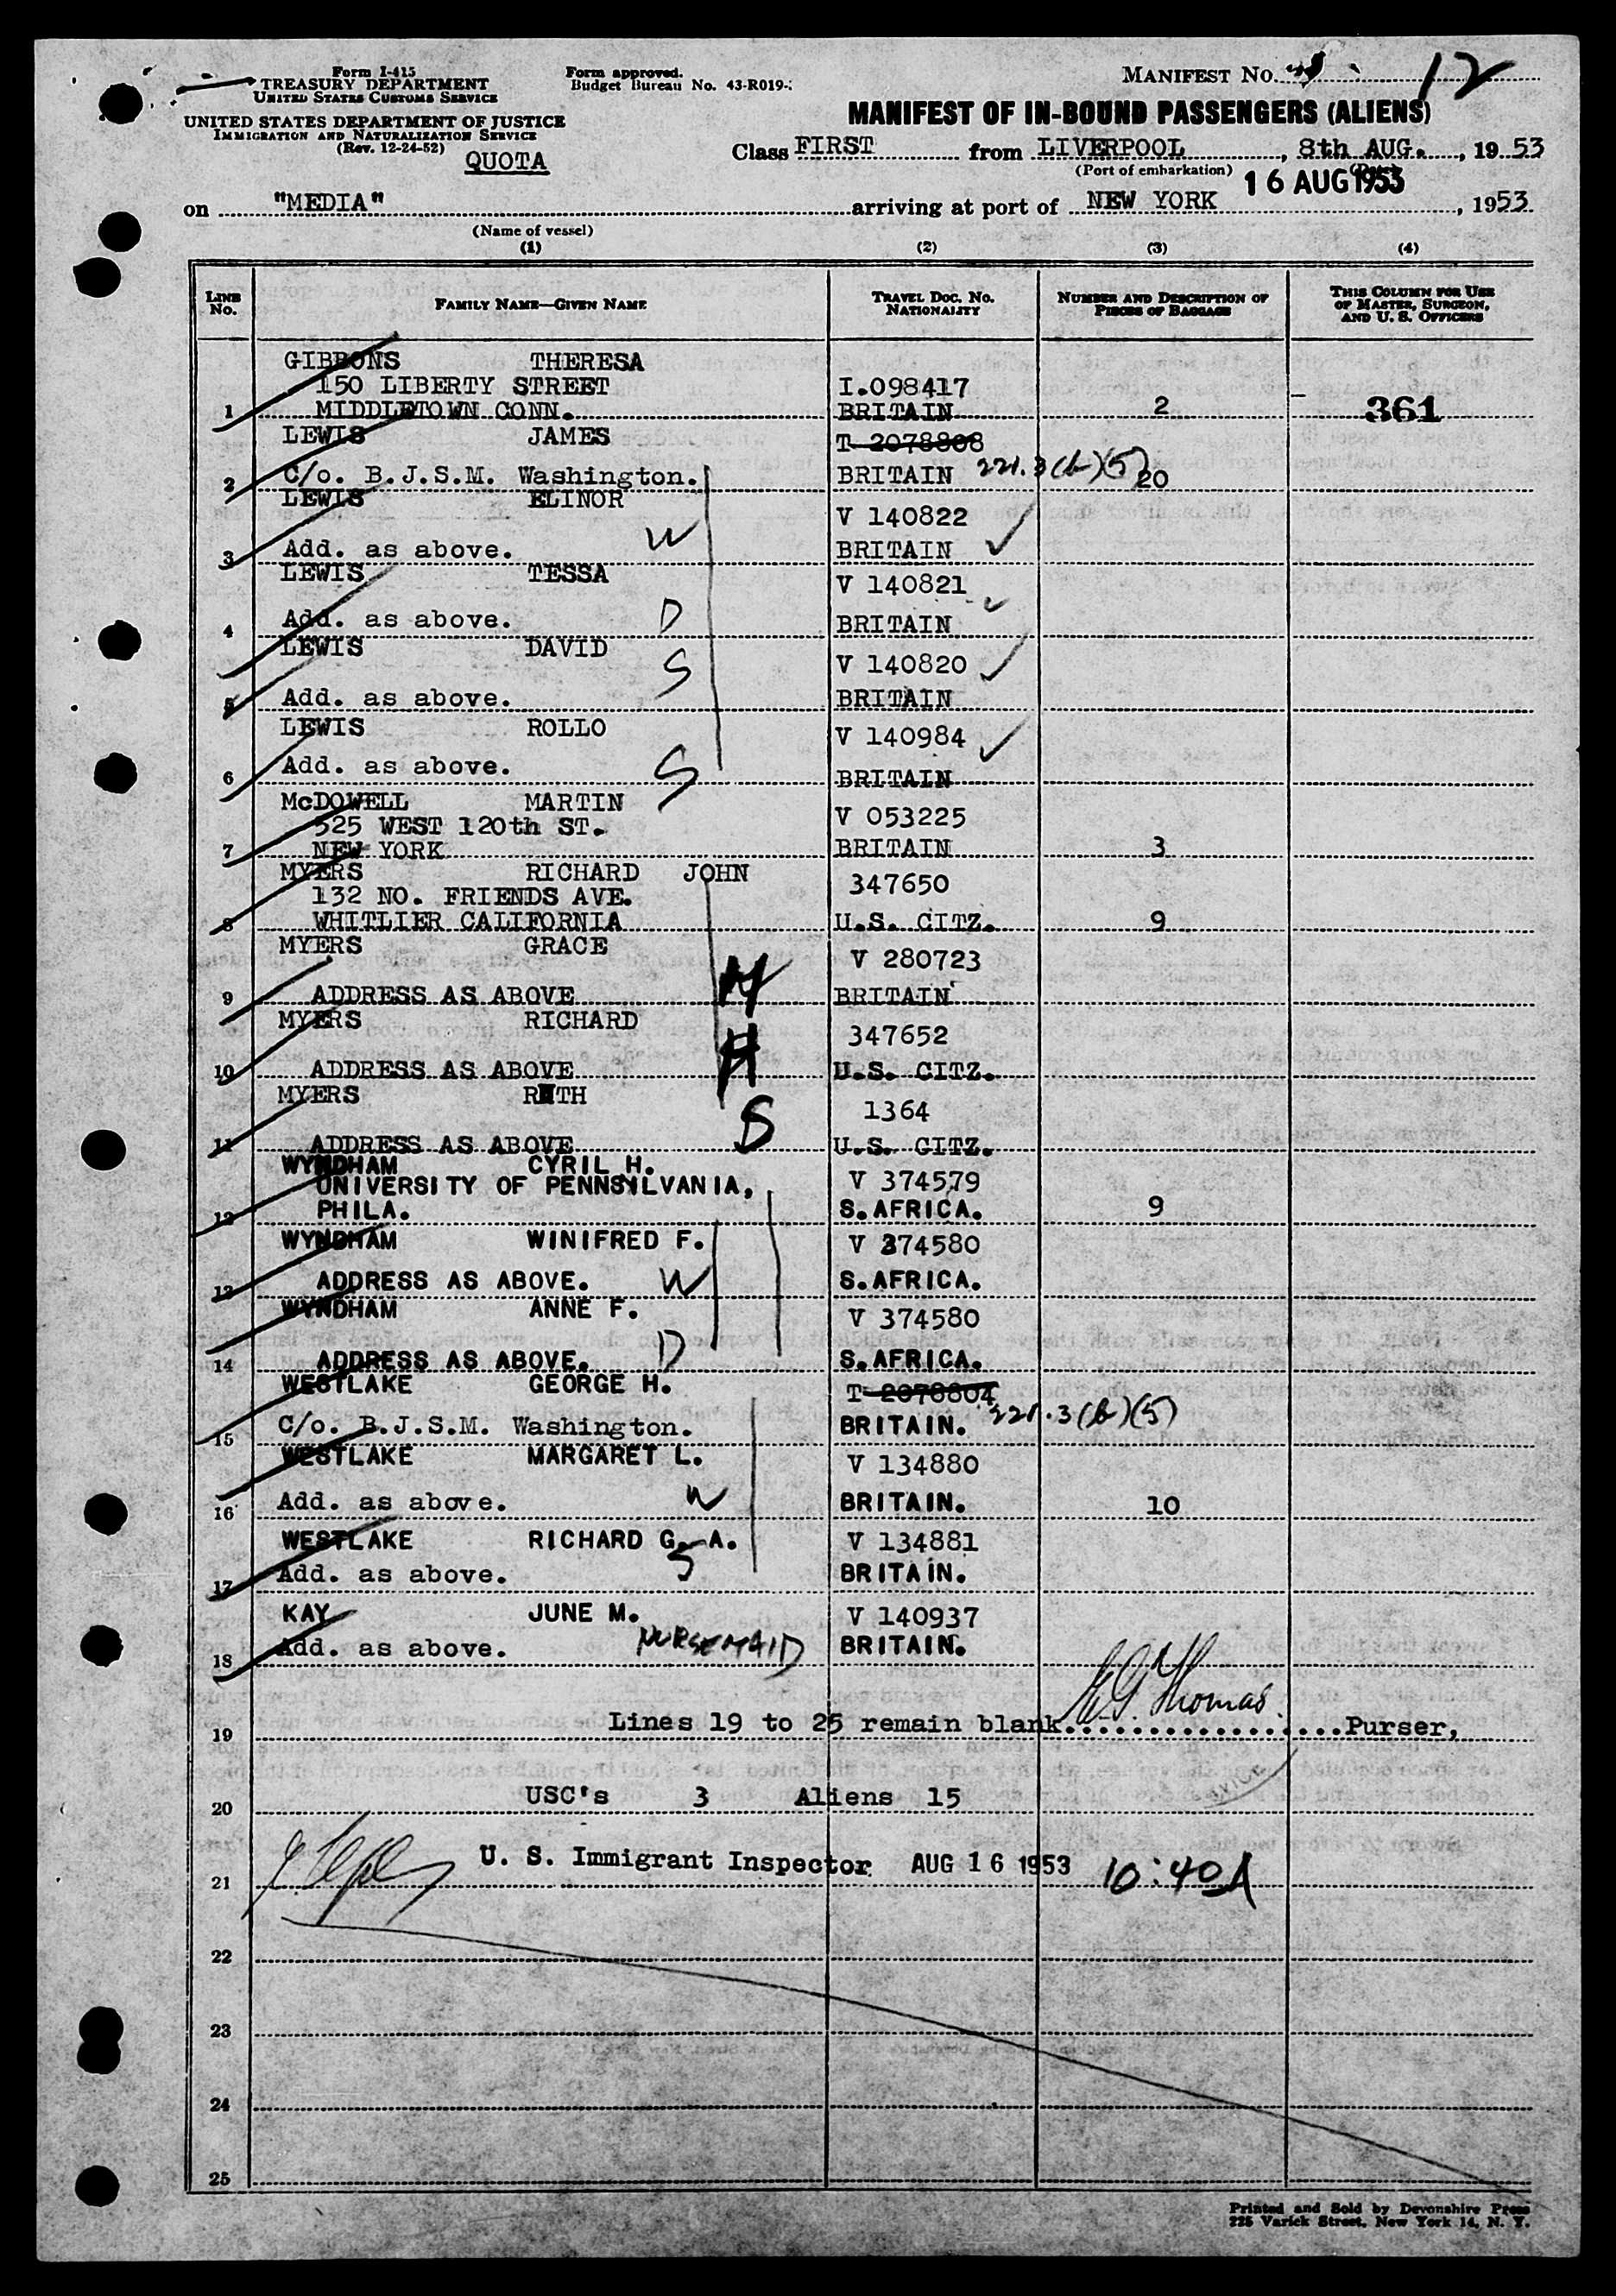 Form I-415
TREASURY DEPARTMENT
UNITED STATES CUSTOMS SERVICE
UNITED STATES DEPARTMENT OF JUSTICE
IMMIGRATION AND NATURALIZATION SERVICE
(Rev. 12-24-52)
QUOTA
Form approved.
Budget Bureau No. 43-R019-
MANIFEST No. 12
MANIFEST OF IN-BOUND PASSENGERS (ALIENS)
Class FIRST from LIVERPOOL, 8th AUG., 19 53
(Port of embarkation) (Date)
16 AUG 1953
on "MEDIA" arriving at port of NEW YORK, 1953
(Name of vessel)
(1) (2) (3) (4)
LINE No. FAMILY NAME—GIVEN NAME TRAVEL DOC. No. NATIONALITY NUMBER AND DESCRIPTION OF PIECES OF BAGGAGE THIS COLUMN FOR USE OF MASTER, SURGEON, AND U. S. OFFICERS
GIBBONS THERESA
150 LIBERTY STREET I.098417
1 MIDDLETOWN CONN. BRITAIN 2 361
LEWIS JAMES T 2078808
2 C/o. B.J.S.M. Washington. BRITAIN 221.3(b)(5) 20
LEWIS ELINOR V 140822
3 Add. as above. W BRITAIN
LEWIS TESSA V 140821
4 Add. as above. D BRITAIN
LEWIS DAVID V 140820
5 Add. as above. S BRITAIN
LEWIS ROLLO V 140984
6 Add. as above. S BRITAIN
McDOWELL MARTIN V 053225
525 WEST 120th ST.
7 NEW YORK BRITAIN 3
MYERS RICHARD JOHN 347650
132 NO. FRIENDS AVE.
8 WHITLIER CALIFORNIA U.S. CITZ. 9
MYERS GRACE V 280723
9 ADDRESS AS ABOVE BRITAIN
MYERS RICHARD 347652
10 ADDRESS AS ABOVE H U.S. CITZ.
MYERS RUTH 1364
11 ADDRESS AS ABOVE S U.S. CITZ.
WYNDHAM CYRIL H. V 374579
UNIVERSITY OF PENNSYLVANIA,
12 PHILA. S.AFRICA. 9
WYNDHAM WINIFRED F. V 374580
13 ADDRESS AS ABOVE. W S.AFRICA.
WYNDHAM ANNE F. V 374580
14 ADDRESS AS ABOVE. D S.AFRICA.
WESTLAKE GEORGE H. T 2078804
15 C/o. B.J.S.M. Washington. BRITAIN. 221.3(b)(5)
WESTLAKE MARGARET L. V 134880
16 Add. as above. W BRITAIN. 10
WESTLAKE RICHARD G. A. V 134881
17 Add. as above. S BRITAIN.
KAY JUNE M. V 140937
18 Add. as above. NURSEMAID BRITAIN.
19 Lines 19 to 25 remain blank. Thomas. Purser,
20 USC's 3 Aliens 15
21 U. S. Immigrant Inspector AUG 16 1953 10:40A
22
23
24
25
Printed and Sold by Devonshire Press
225 Varick Street, New York 14, N. Y.